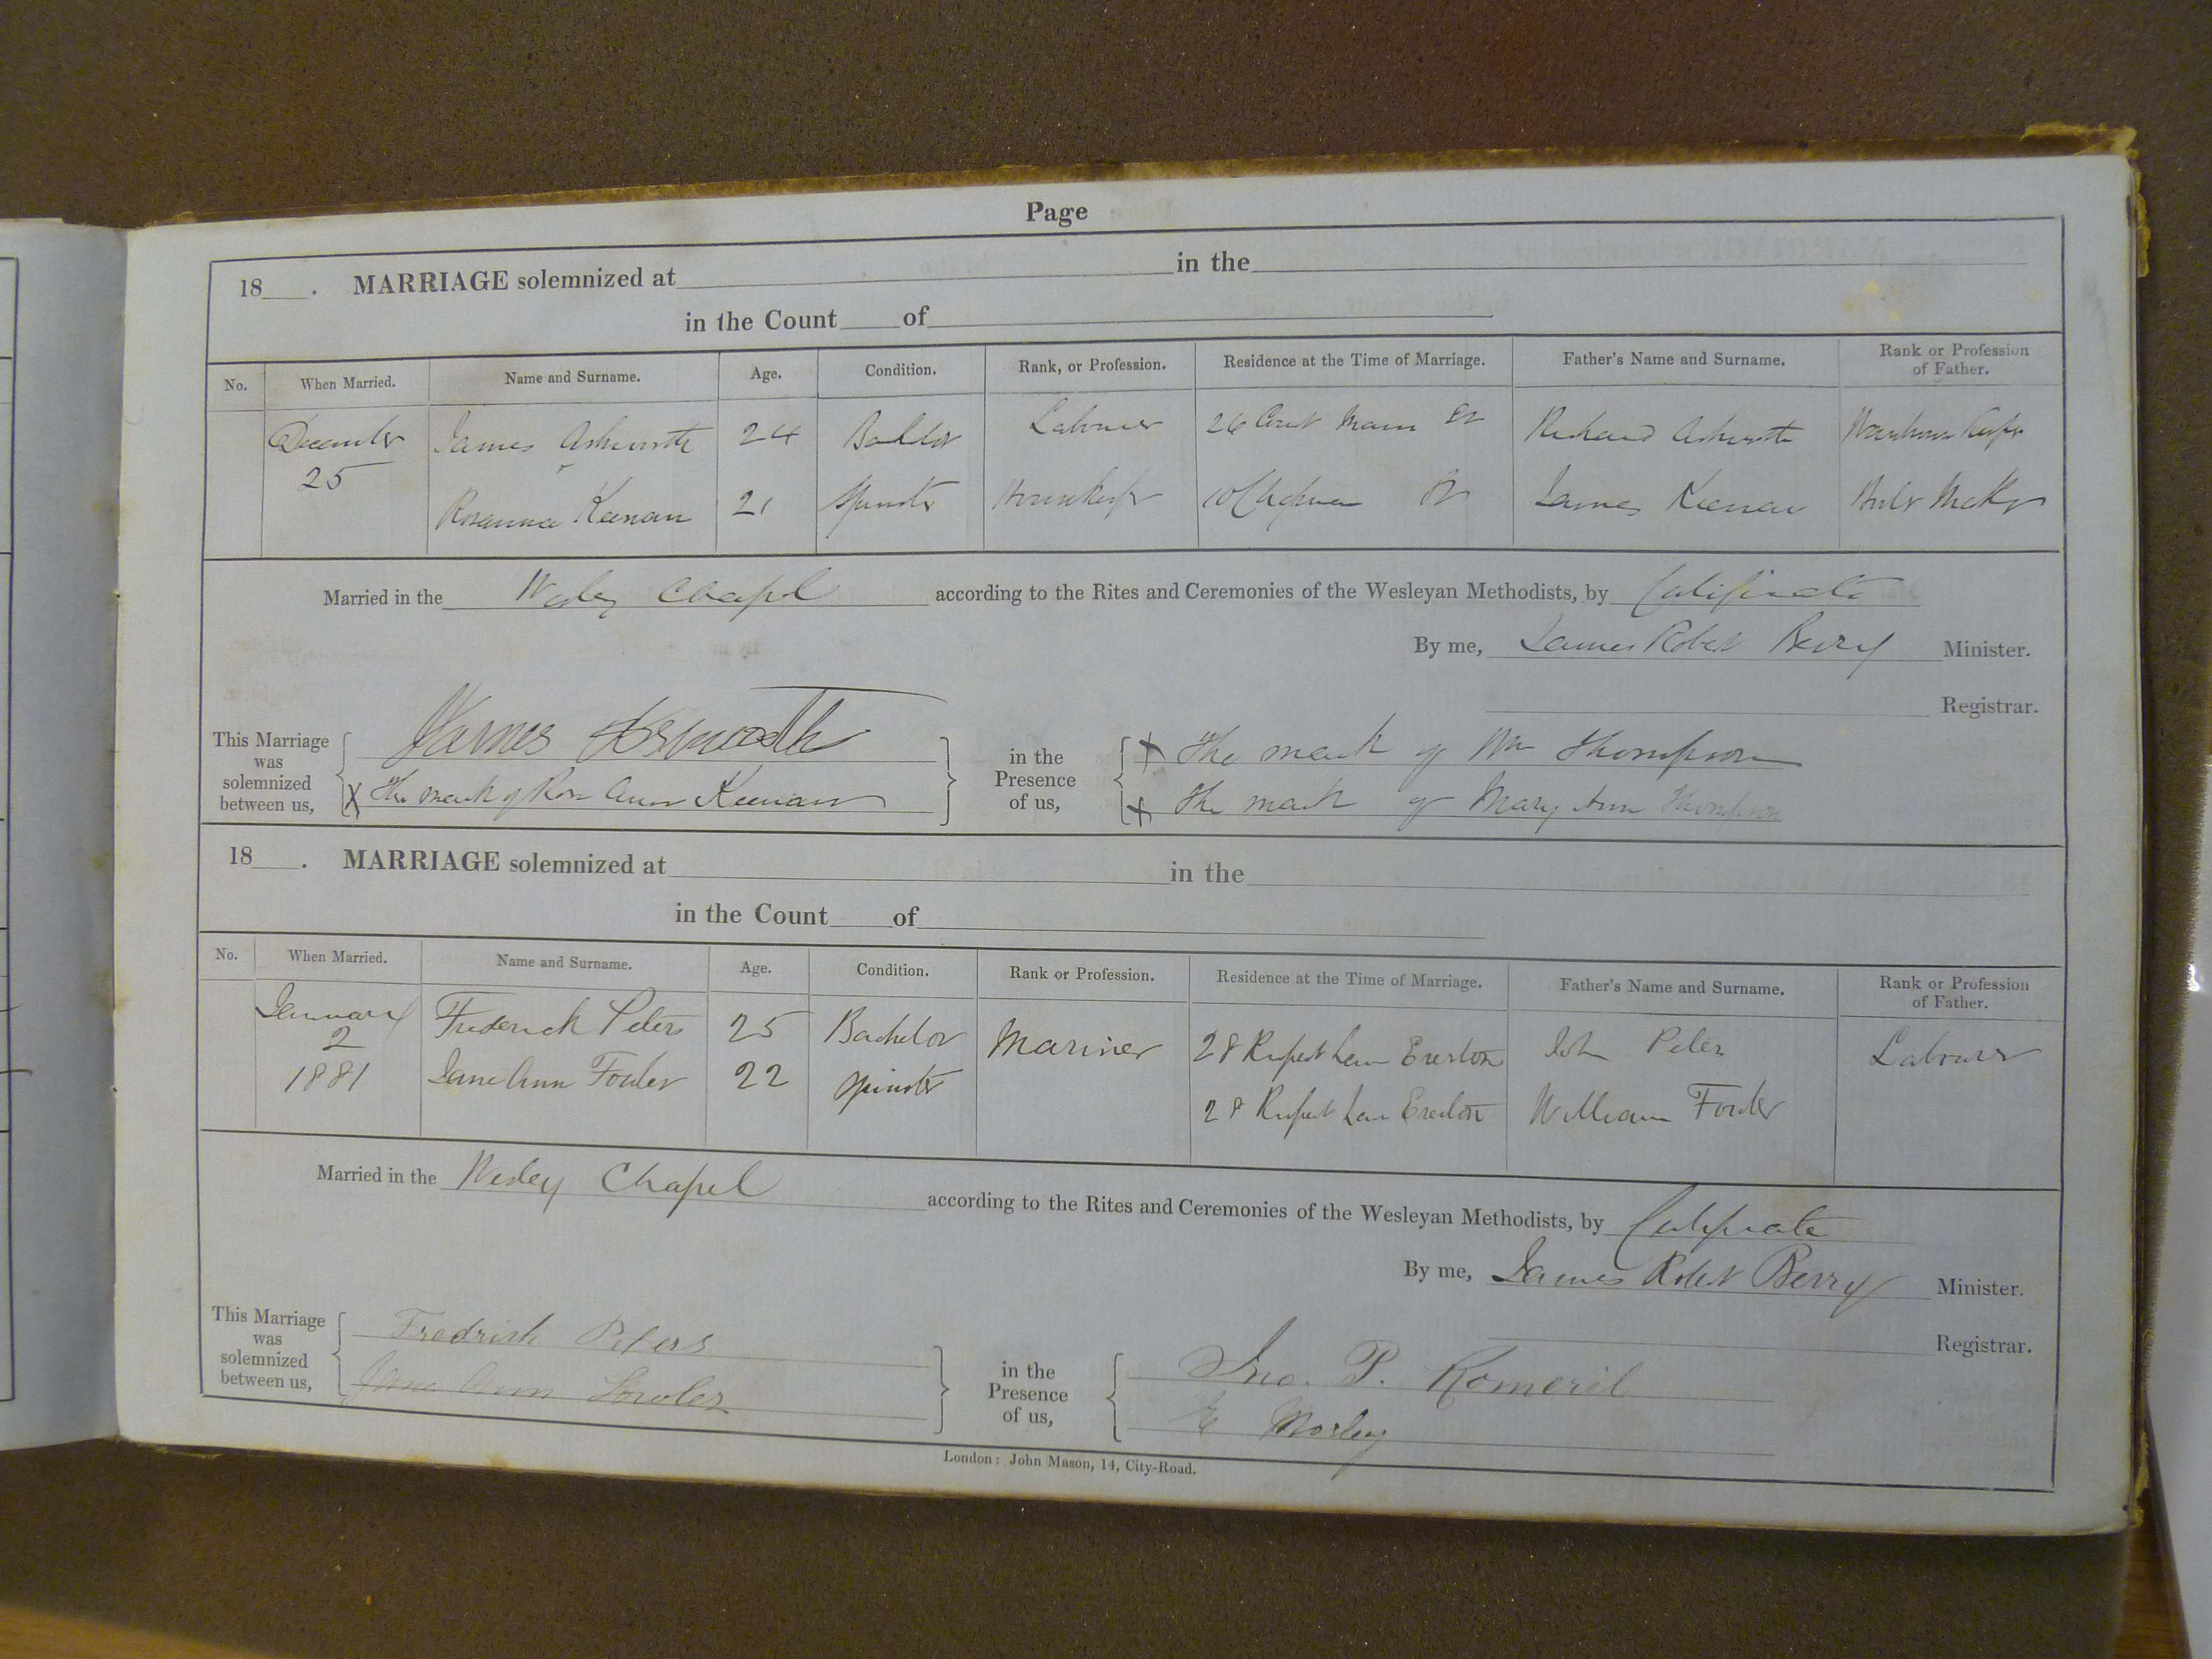 Page
18___. MARRIAGE solemnized at ___ in the ___
in the Count___ of ___
No. When Married. Name and Surname. Age. Condition. Rank, or Profession. Residence at the Time of Marriage. Father's Name and Surname. Rank or Profession of Father.
December James Ashworth 24 Bachelor Labourer 26 Court Mann St Richard Ashworth Warehouse Keeper
25 Rosanna Keenan 21 Spinster Housekeeper 10 Chapman St James Keenan Maker
Married in the Wesley Chapel according to the Rites and Ceremonies of the Wesleyan Methodists, by Certificate
By me, James Robert Berry Minister.
Registrar.
This Marriage was solemnized between us, James Asworth
X The mark of Rose Ann Keenan
in the Presence of us, X The mark of Wm Thompson
X The mark of Mary Ann Thompson
18___. MARRIAGE solemnized at ___ in the ___
in the Count___ of ___
No. When Married. Name and Surname. Age. Condition. Rank or Profession. Residence at the Time of Marriage. Father's Name and Surname. Rank or Profession of Father.
January 2 Frederick Peters 25 Bachelor Mariner 28 Rupert Lane Everton John Peters Labourer
1881 Jane Ann Fowler 22 Spinster 28 Rupert Lane Everton William Fowler
Married in the Wesley Chapel according to the Rites and Ceremonies of the Wesleyan Methodists, by Certificate
By me, James Robert Berry Minister.
Registrar.
This Marriage was solemnized between us, Fredrish Peters
Jane Ann Fowler
in the Presence of us, Jno. P. Romeril
E Morley
London: John Mason, 14, City-Road.